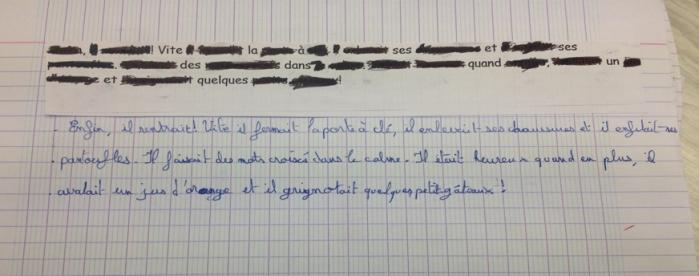 ! Vite la à ses et ses
des dans quand , un
et quelques !
Enfin, il rentrait! Vite il fermait la porte à clé, il enlevait ses chaussures et il enfilait ses
pantoufles. Il faisait des mots croisés dans le calme. Il était heureux quand en plus, il
avalait un jus d'orange et il grignotait quelques petits gâteaux !